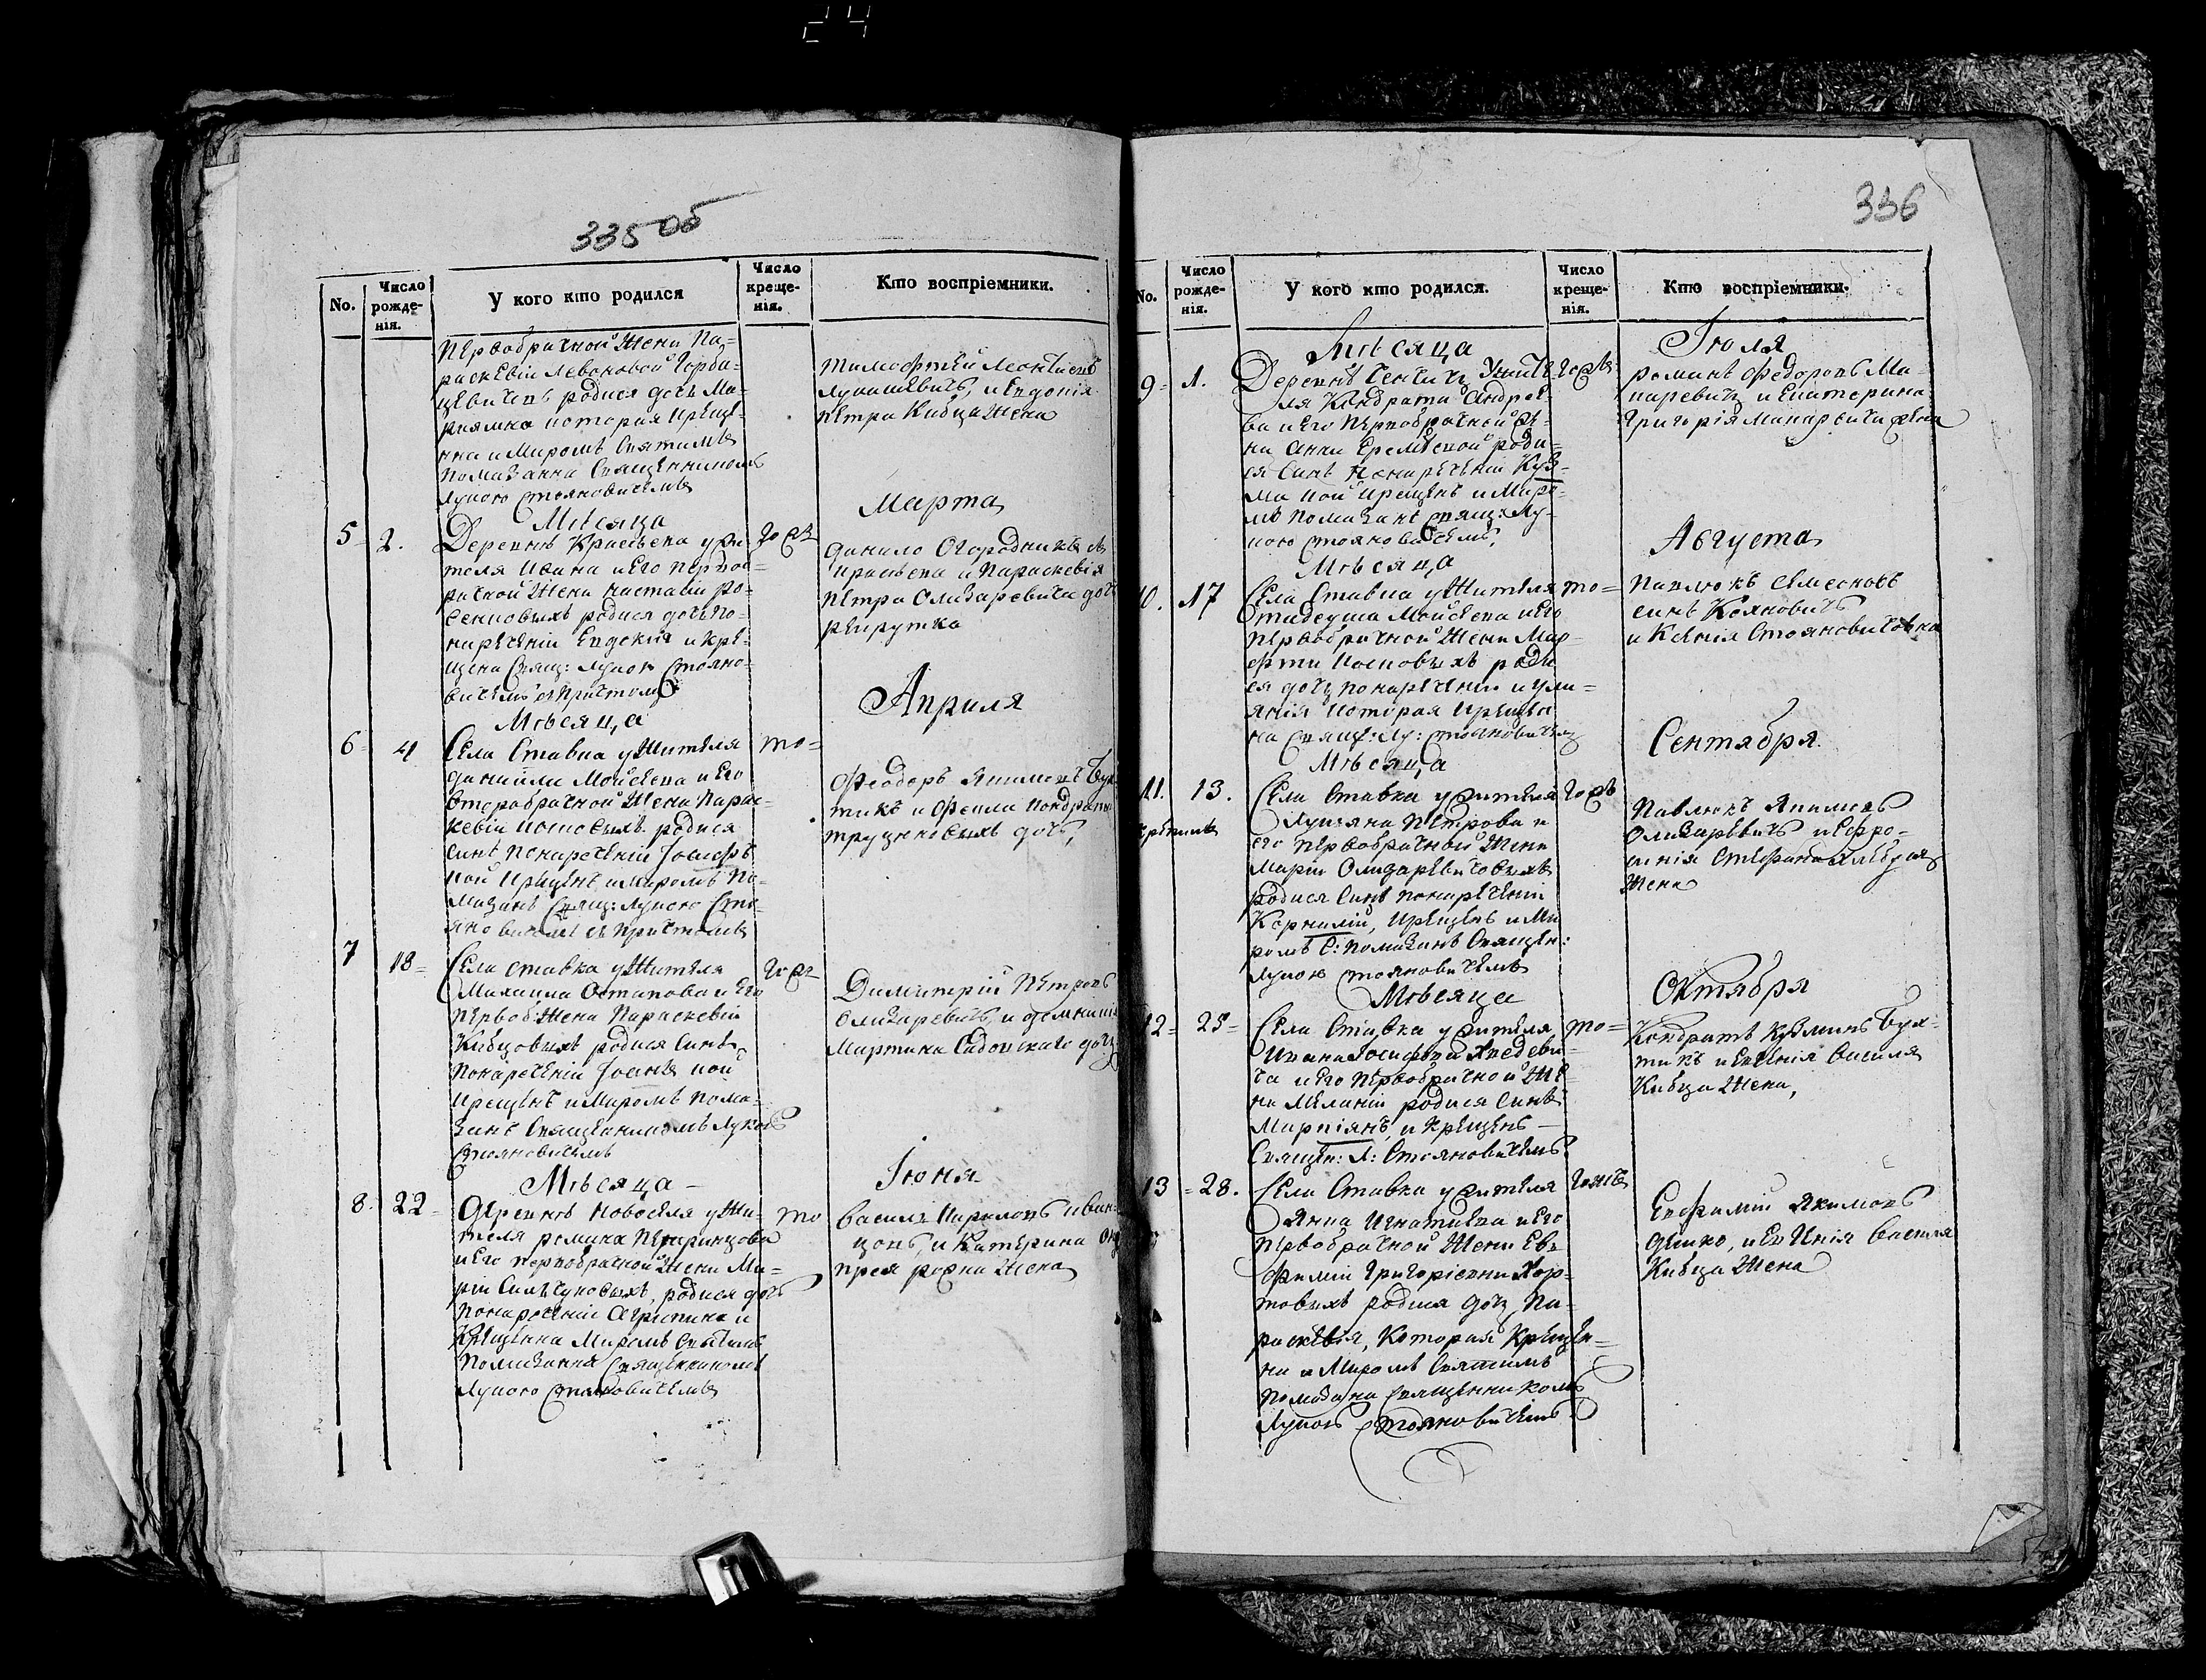 24
335 об
No.
Число рожденія.
У кого кто родился
Число крещенія.
Кто воспріемники.
первобрачной жени Па-
раскевіи Левоновой Горба-
цевичевъ родися дочь Ма-
риямка которая креще-
нна и Миромъ Святимъ
помазанна Священникомъ
Лукою Стояновичемъ
Тимофтей Леонтиевъ
Лукашевичъ, и Евдокія
Петра Кибца жена
Мѣсяца
Марта
5
2.
Деревнѣ Красѣева у жи-
теля Ивана и Его первоб-
рачной жени Настасіи
родися дочь по-
нареченіи Евдокія и кре-
щена Свящ: Лукою Стояно-
вичемъ съ причтомъ
того жъ
Данило Огородникъ
Красѣева и Параскевія
Петра Олизаревича дочь
рекрутка
Мѣсяца
Апреля
6
4
Села Ставка у жителя
Даниила Мойсеева и Его
второбрачной жени Парас-
кевіи родися
синъ понареченіи Іосифъ
кой крещенъ и миромъ по-
мазанъ Свящ: Лукою Сто-
яновичемъ съ причтомъ
то=
Феодоръ Якимовъ Бух-
тикъ и Фекла Кондрата
дочь,
7
18=
Села Ставка у жителя
Михаила Остапова и Его
первоб: жени Параскевіи
Кибцовыхъ родися синъ
понареченіи Іоанъ кой
крещенъ и Миромъ пома-
занъ Священникомъ Лукою
Стояновичемъ
того жъ
Димитрій Петровъ
Олизаревичъ, и Домникія
Мартина Садовскаго дочь
Мѣсяца
Іюня
8.
22=
Деревнѣ Новоселя у жи-
теля Романа
и Его первобрачной жени Ма-
ріи родися дочь
понареченіи Агрипина и
Крещенна Миромъ Святимъ
помазанна Священникомъ
Лукою Стояновичемъ
то
Василъ Кириловъ Иван-
цовъ, и Катерина Онд-
прея жена
336
No.
Число рожденія.
У кого кто родился.
Число крещенія.
Кто воспріемники.
Мѣсяца
Іюля
9=
1.
Деревнѣ у жите-
ля Кондрата Андрее-
ва и Его первобрачной же-
ни Анни Еремѣевой роди-
ся синъ понареченіи Куз-
ма кой крещенъ и Миро-
мъ помазанъ Свящ: Лу-
кою Стояновичемъ,
того жъ
Романъ Федоровъ Ма-
каревичъ и Екатерина
Григорія Макаревича жена
Мѣсяца
Августа
10.
17
Села Ставка у жителя
Фтадеуша Мойсеева и Его
первобрачной жени Мар-
фти роди
ся дочь понареченіи Иули-
янія которая крещен
на Свящ: Лу: Стояновичемъ
то=
Павлюкъ Семеновъ
синъ Кояновичъ
и Ксенія Стояновичовна
Мѣсяца
Сентября
11.
13.
Села Ставка у жителя
Лукяна Петрова и
его первобрачной жени
Маріи Олизаревичовыхъ
родися синъ понареченіи
Корнилій, крещенъ и Ми
ромъ С: помазанъ Священ:
Лукою Стояновичемъ
того жъ
Павлюкъ Якимовъ
Олизаревичъ и Ефро-
синія Стефана
жена
Мѣсяца
Октября
12=
25=
Села Ставка у жителя
Ивана Іосифова
ча и Его первобрачной же-
ни Меланіи родися синъ
Маркіянъ, и крещенъ
Священ: Л: Стояновичемъ.
то=
Кондратъ Кузминъ Бух-
тикъ и Евгенія Василя
Кибца жена,
13
=28.
Села Ставка у жителя
Яна Игнатиева и Его
первобрачной жени Ев-
фиміи Григоріевни
родися дочь Па-
раскевія, которая крещен-
на и Миромъ Святимъ
помазана Священникомъ
Лукою Стояновичемъ
того жъ
Евфимій Якимовъ
и Евгенія Василя
Кибца жена